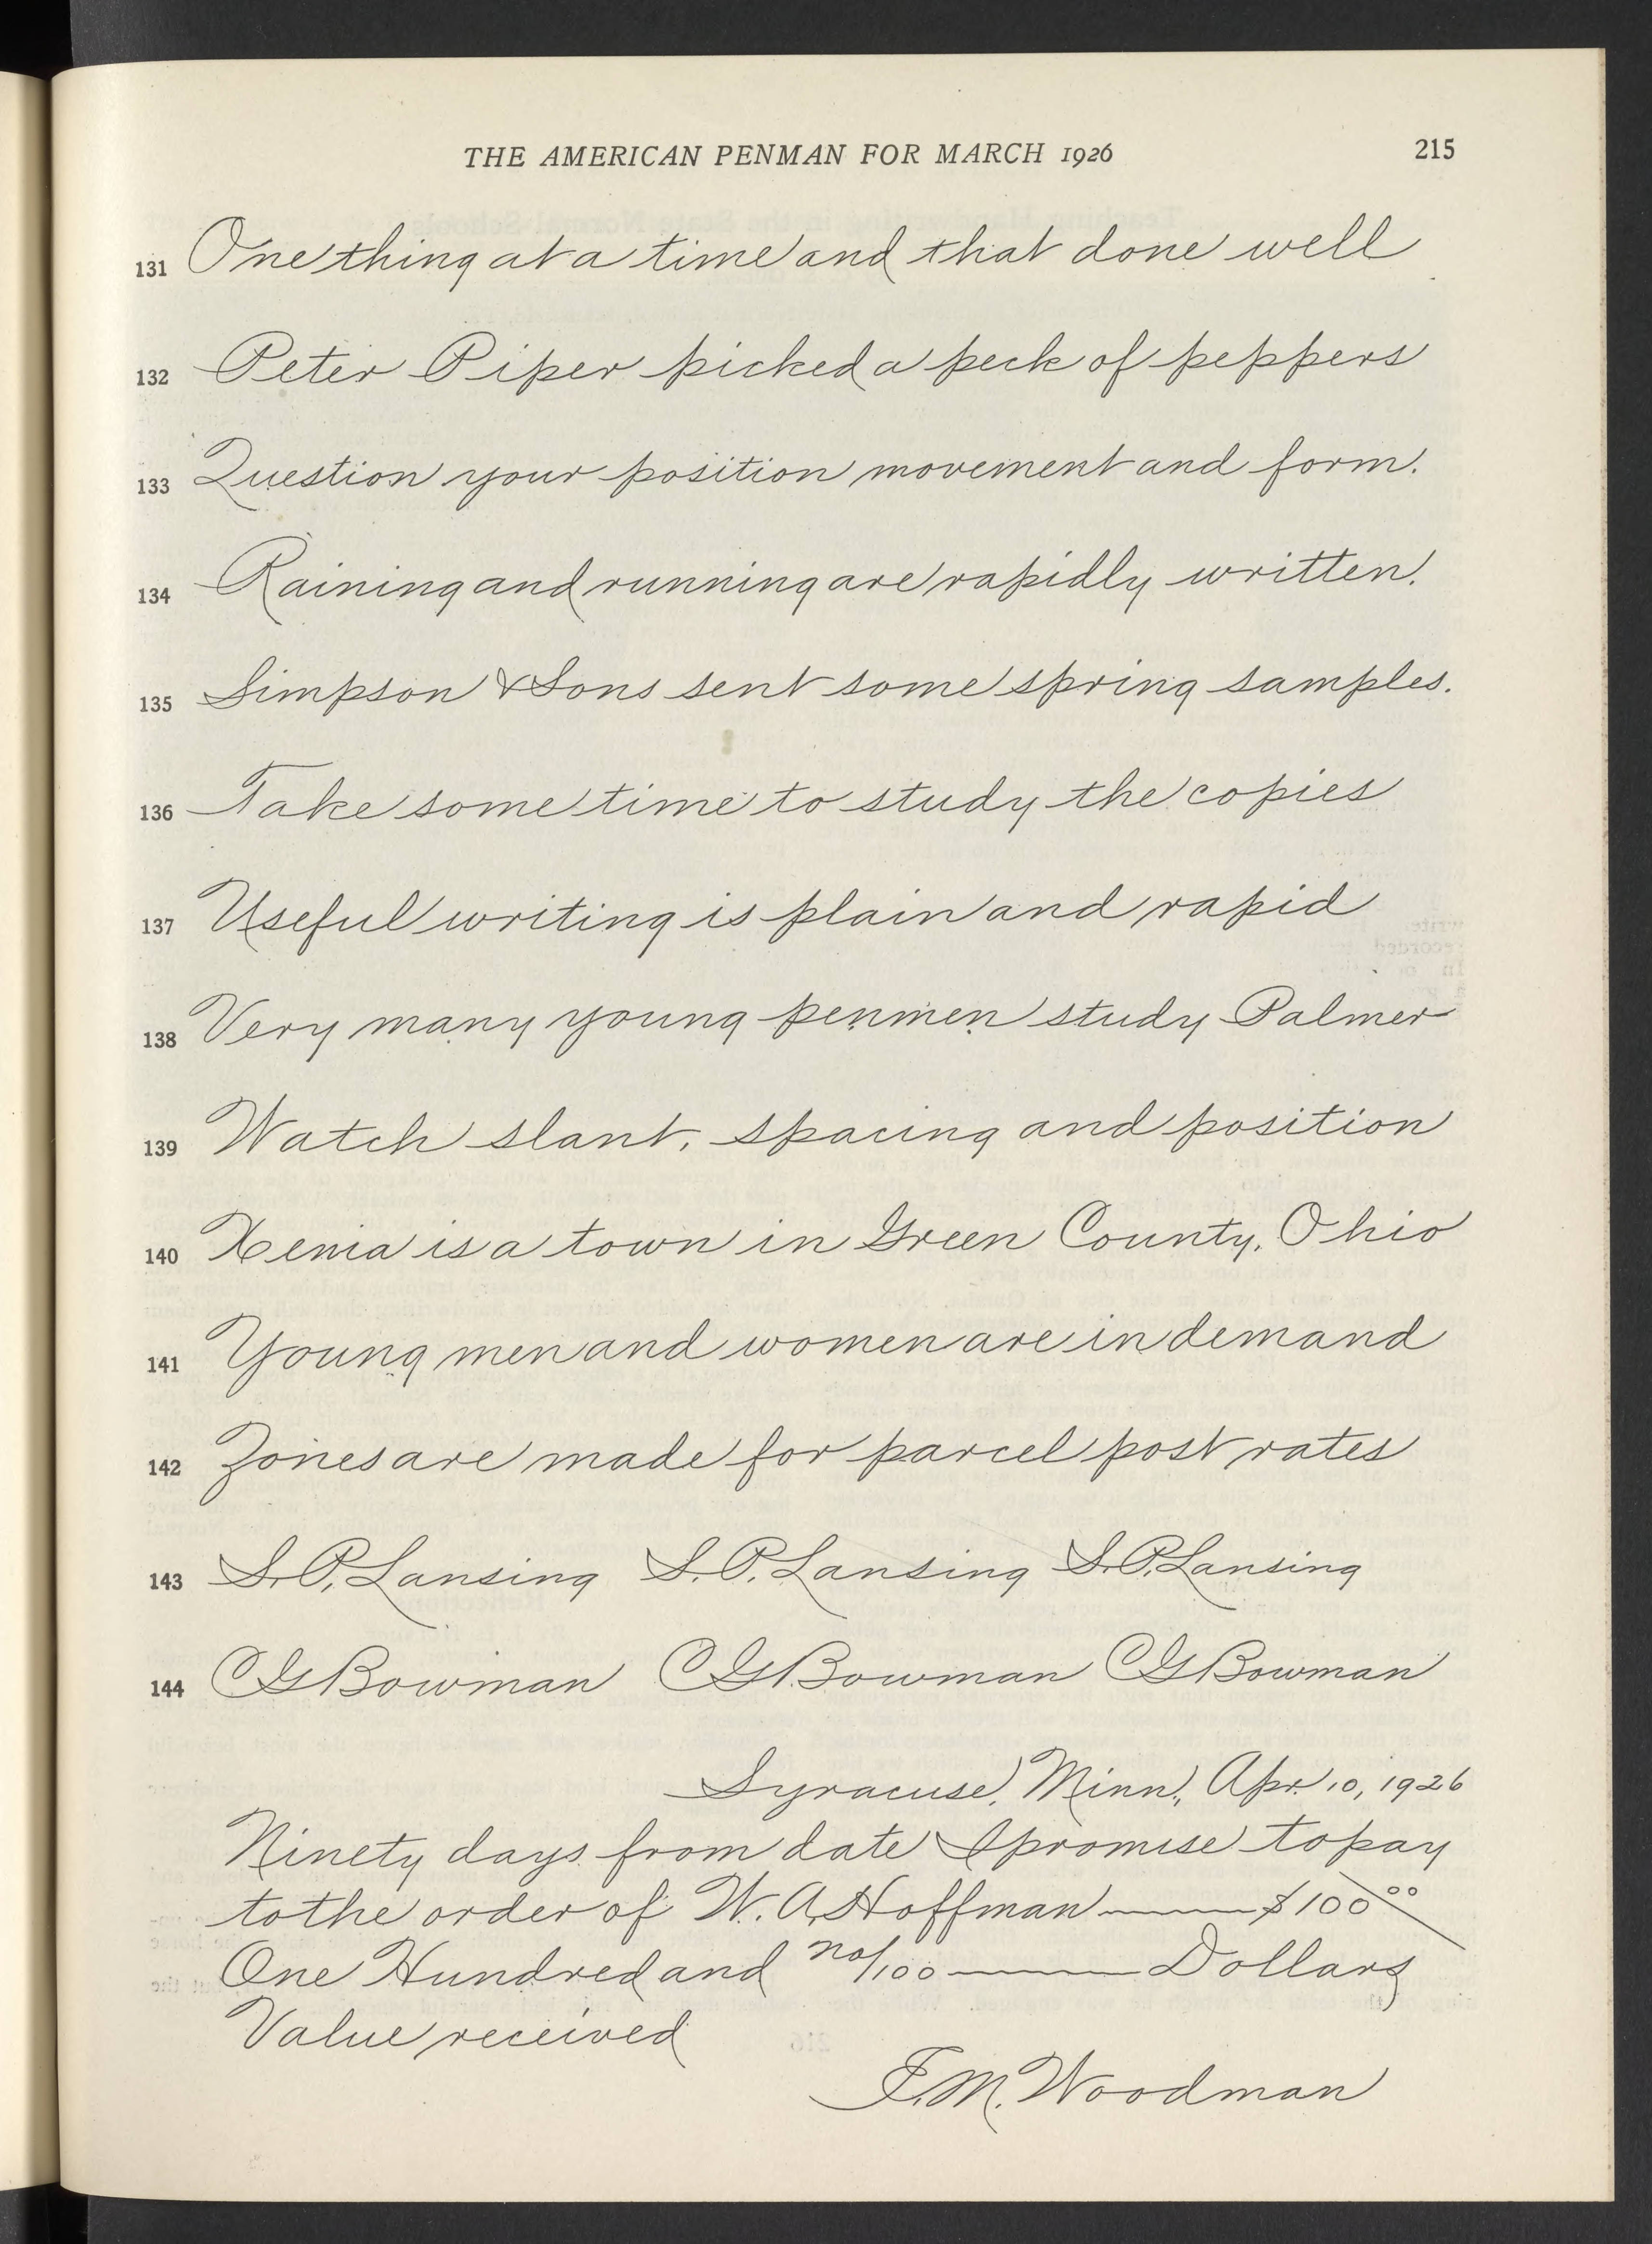 THE AMERICAN PENMAN FOR MARCH 1926 215
131 One thing at a time and that done well
132 Peter Piper picked a peck of peppers
133 Question your position movement and form.
134 Raining and running are rapidly written.
135 Simpson & Sons sent some spring samples.
136 Take some time to study the copies
137 Useful writing is plain and rapid
138 Very many young penmen study Palmer
139 Watch slant, spacing and position
140 Xenia is a town in Green County, Ohio
141 Young men and women are in demand
142 Zones are made for parcel post rates
143 S. P. Lansing S. P. Lansing S. P. Lansing
144 C G Bowman C G Bowman C G Bowman
Syracuse, Minn., Apr. 10, 1926
Ninety days from date I promise to pay
to the order of W. A. Hoffman $100 00
One Hundred and no/100 Dollars
Value received
F. M. Woodman